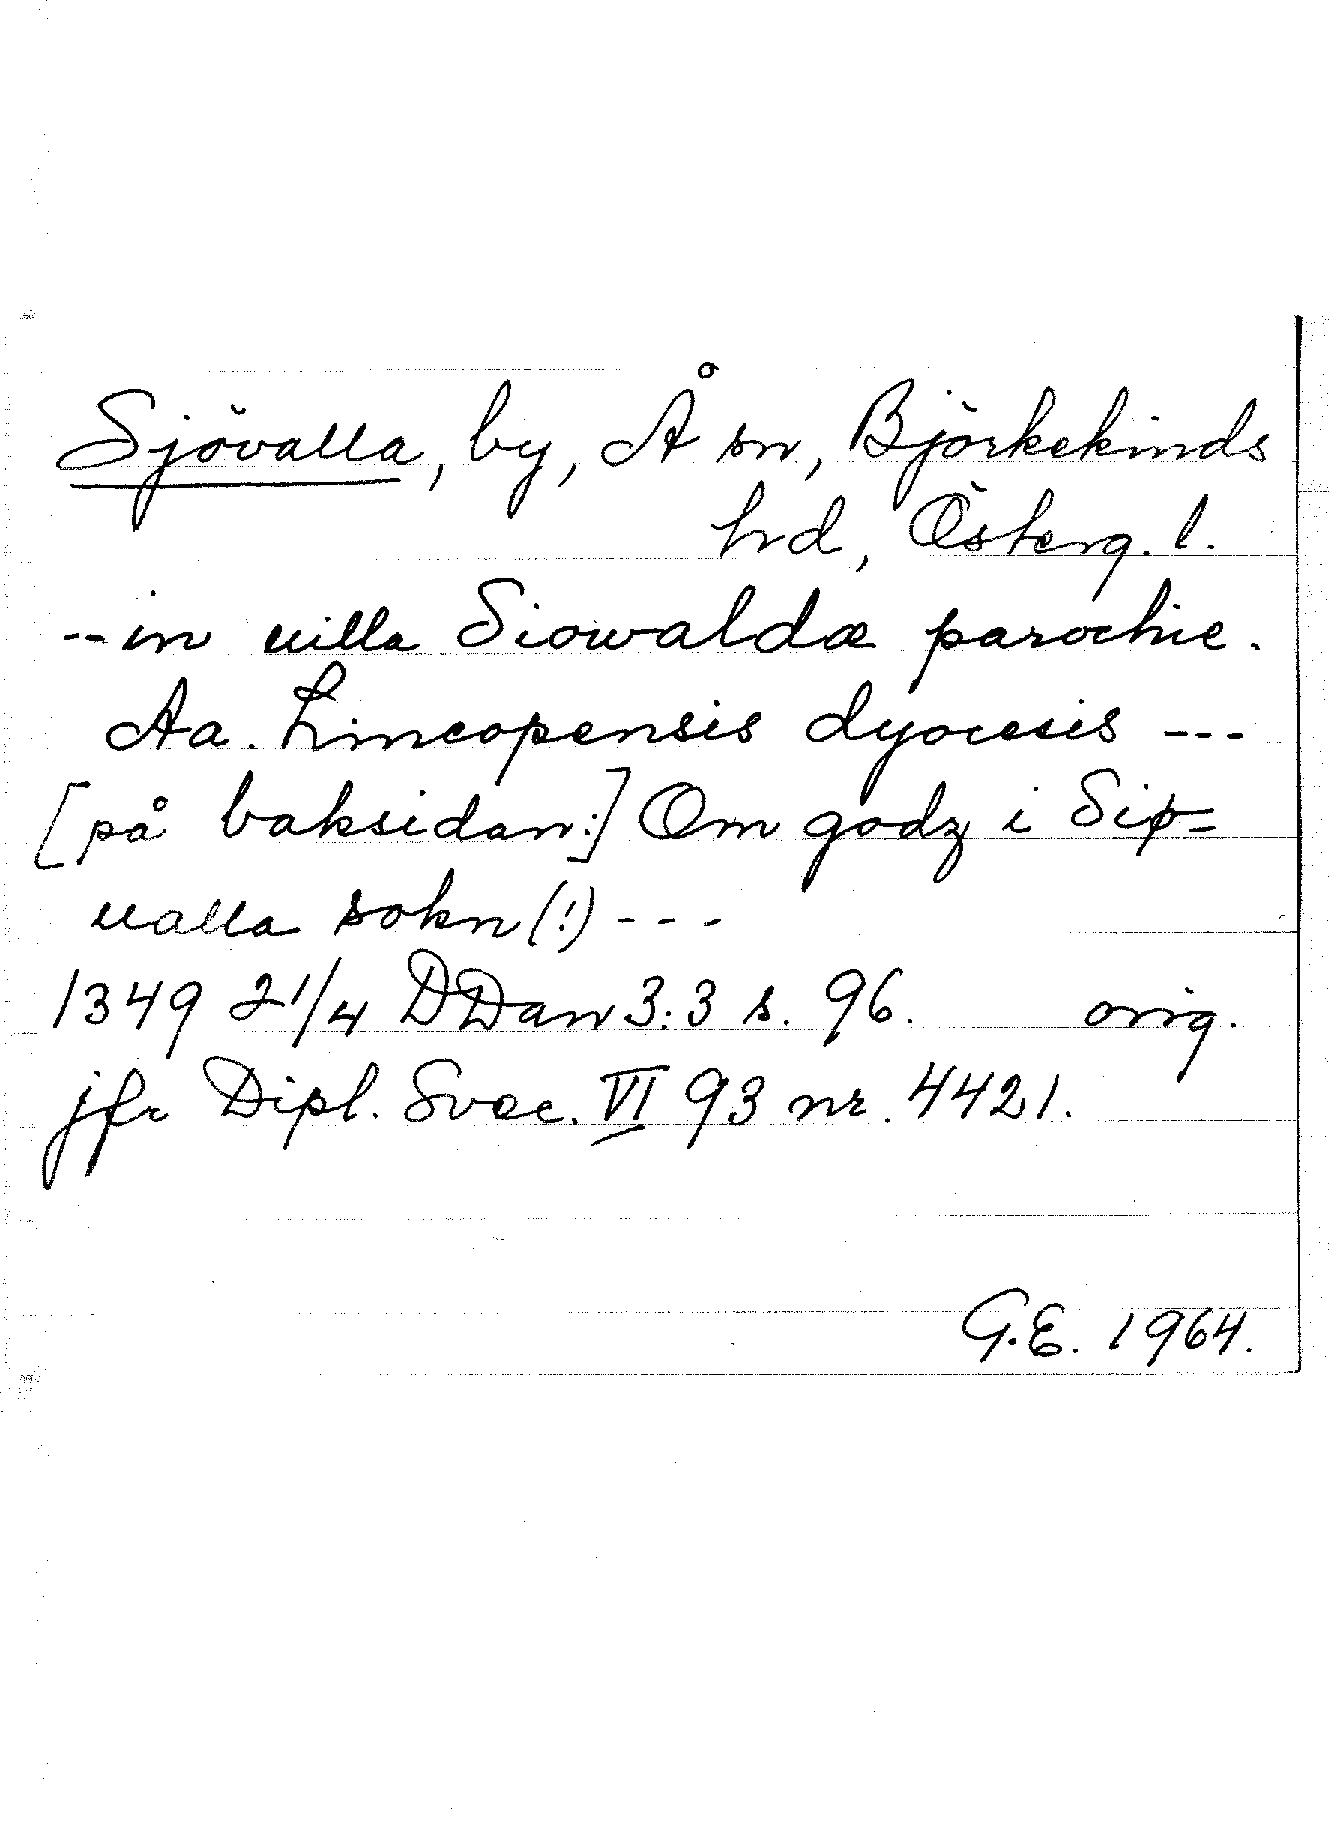 Sjövalla, by, Å sn, Björkekinds
hrd, Österg. l.
-- in uilla Siowaldæ parochie.
Aa. Lincopensis dyocesis ---
[på baksidan:] Om godz i Siø-
ualla sokn (!) ---
1349 21/4 DDan 3:3 s. 96. orig.
jfr Dipl. Svec. VI 93 nr. 4421.
G.E. 1964.